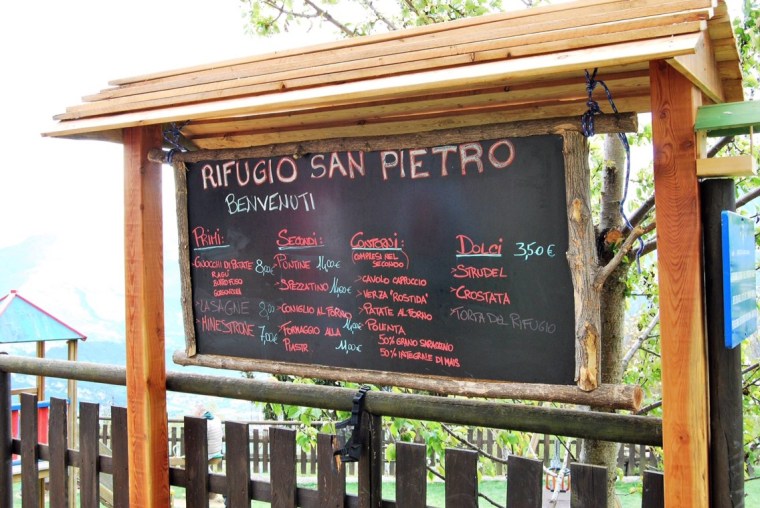 RIFUGIO SAN PIETRO
BENVENUTI
PRIMI:
GNOCCHI DI PATATE 8,00€
RAGÙ
BURRO FUSO
LASAGNE 8,00
MINESTRONE 7,00€
SECONDI:
PUNTINE 11,00€
SPEZZATINO 11,00€
CONIGLIO AL FORNO 11,00€
FORMAGGIO ALLA
PIASTRA 11,00€
CONTORNI:
(COMPRESI NEL
SECONDO)
> CAVOLO CAPPUCCIO
> VERZA "ROSTIDA"
> PATATE AL FORNO
> POLENTA
50% GRANO SARACENO
50% INTEGRALE DI MAIS
DOLCI 3,50€
> STRUDEL
> CROSTATA
> TORTA DEL RIFUGIO